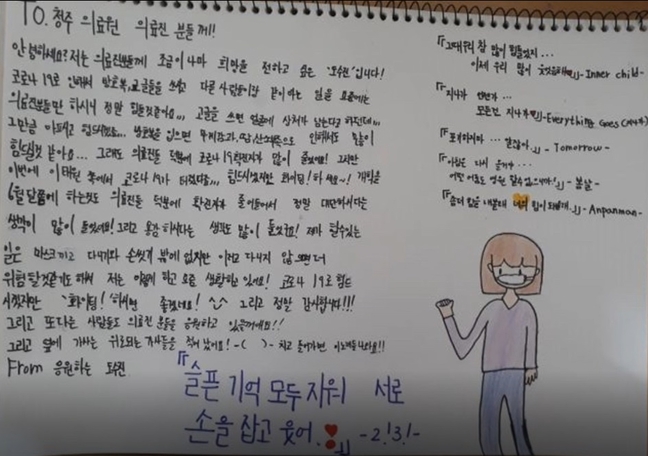 To. 청주 의료원 의료진 분들께!!
안녕하세요? 저는 의료진분들께 조금이나마 희망을 전하고 싶은 입니다!
코로나 19로 인해서 방호복, 고글을 쓰고 다른 사람들이랑 같이 하는 일을 요즘에는
의료진분들만 하시니 정말 힘들것같아요... 고글을 쓰면 얼굴에 상처가 남는다고 하던데...
그만큼 아프시고 힘드시겠죠... 방호복을 입으면 인해서도 많이
힘드실것 같아요... 그래도 의료진들 덕분에 코로나 19 확진자가 많이 줄었어요! 그치만
이번에 이태원 쪽에서 코로나 19가 터졌다죠... 힘드시겠지만 화이팅! 하세요~! 개학을
6월달쯤에 하는것도 의료진들 덕분에 확진자가 줄어들어서 정말 대단하시다는
생각이 많이 들었어요! 그리고 용감하시다는 생각도 많이 들었구요! 제가 할수있는
일은 마스크끼고 다니기와 손씻기 밖에 없지만 이러고 다니지 않으면 더
위험할것같기도 해서 저는 이렇게 하고 요즘 생활하고 있어요! 코로나 19로 힘드
시겠지만 '화이팅!' 하시면 좋겠네요! ^^ 그리고 정말 감사합니다!!!
그리고 또다른 사람들도 의료진 분들을 응원하고 있을꺼에요!!
그리고 옆에 가사는 위로되는 가사들을 적어 놨어요! -( )- 치고 들어가면 이노래 나와요!!
From 응원하는
『그대 우리 참 많이 힘들었지...
이제 우리 많이 웃었음해』- Inner child-
『지나가 언젠가...
모든건 지나가』- Everything Goes (지나가)
『포기하지마... 알잖아』- Tomorrow -
『아침은 다시 올거야...
어떤 어둠도 어떤 계절도 영원할순 없으니까』- 봄날 -
『좀더 힘을 내볼래 너의 힘이 돼볼래』- Anpanman -
『슬픈 기억 모두 지워 서로
손을 잡고 웃어.』 -2!3!-